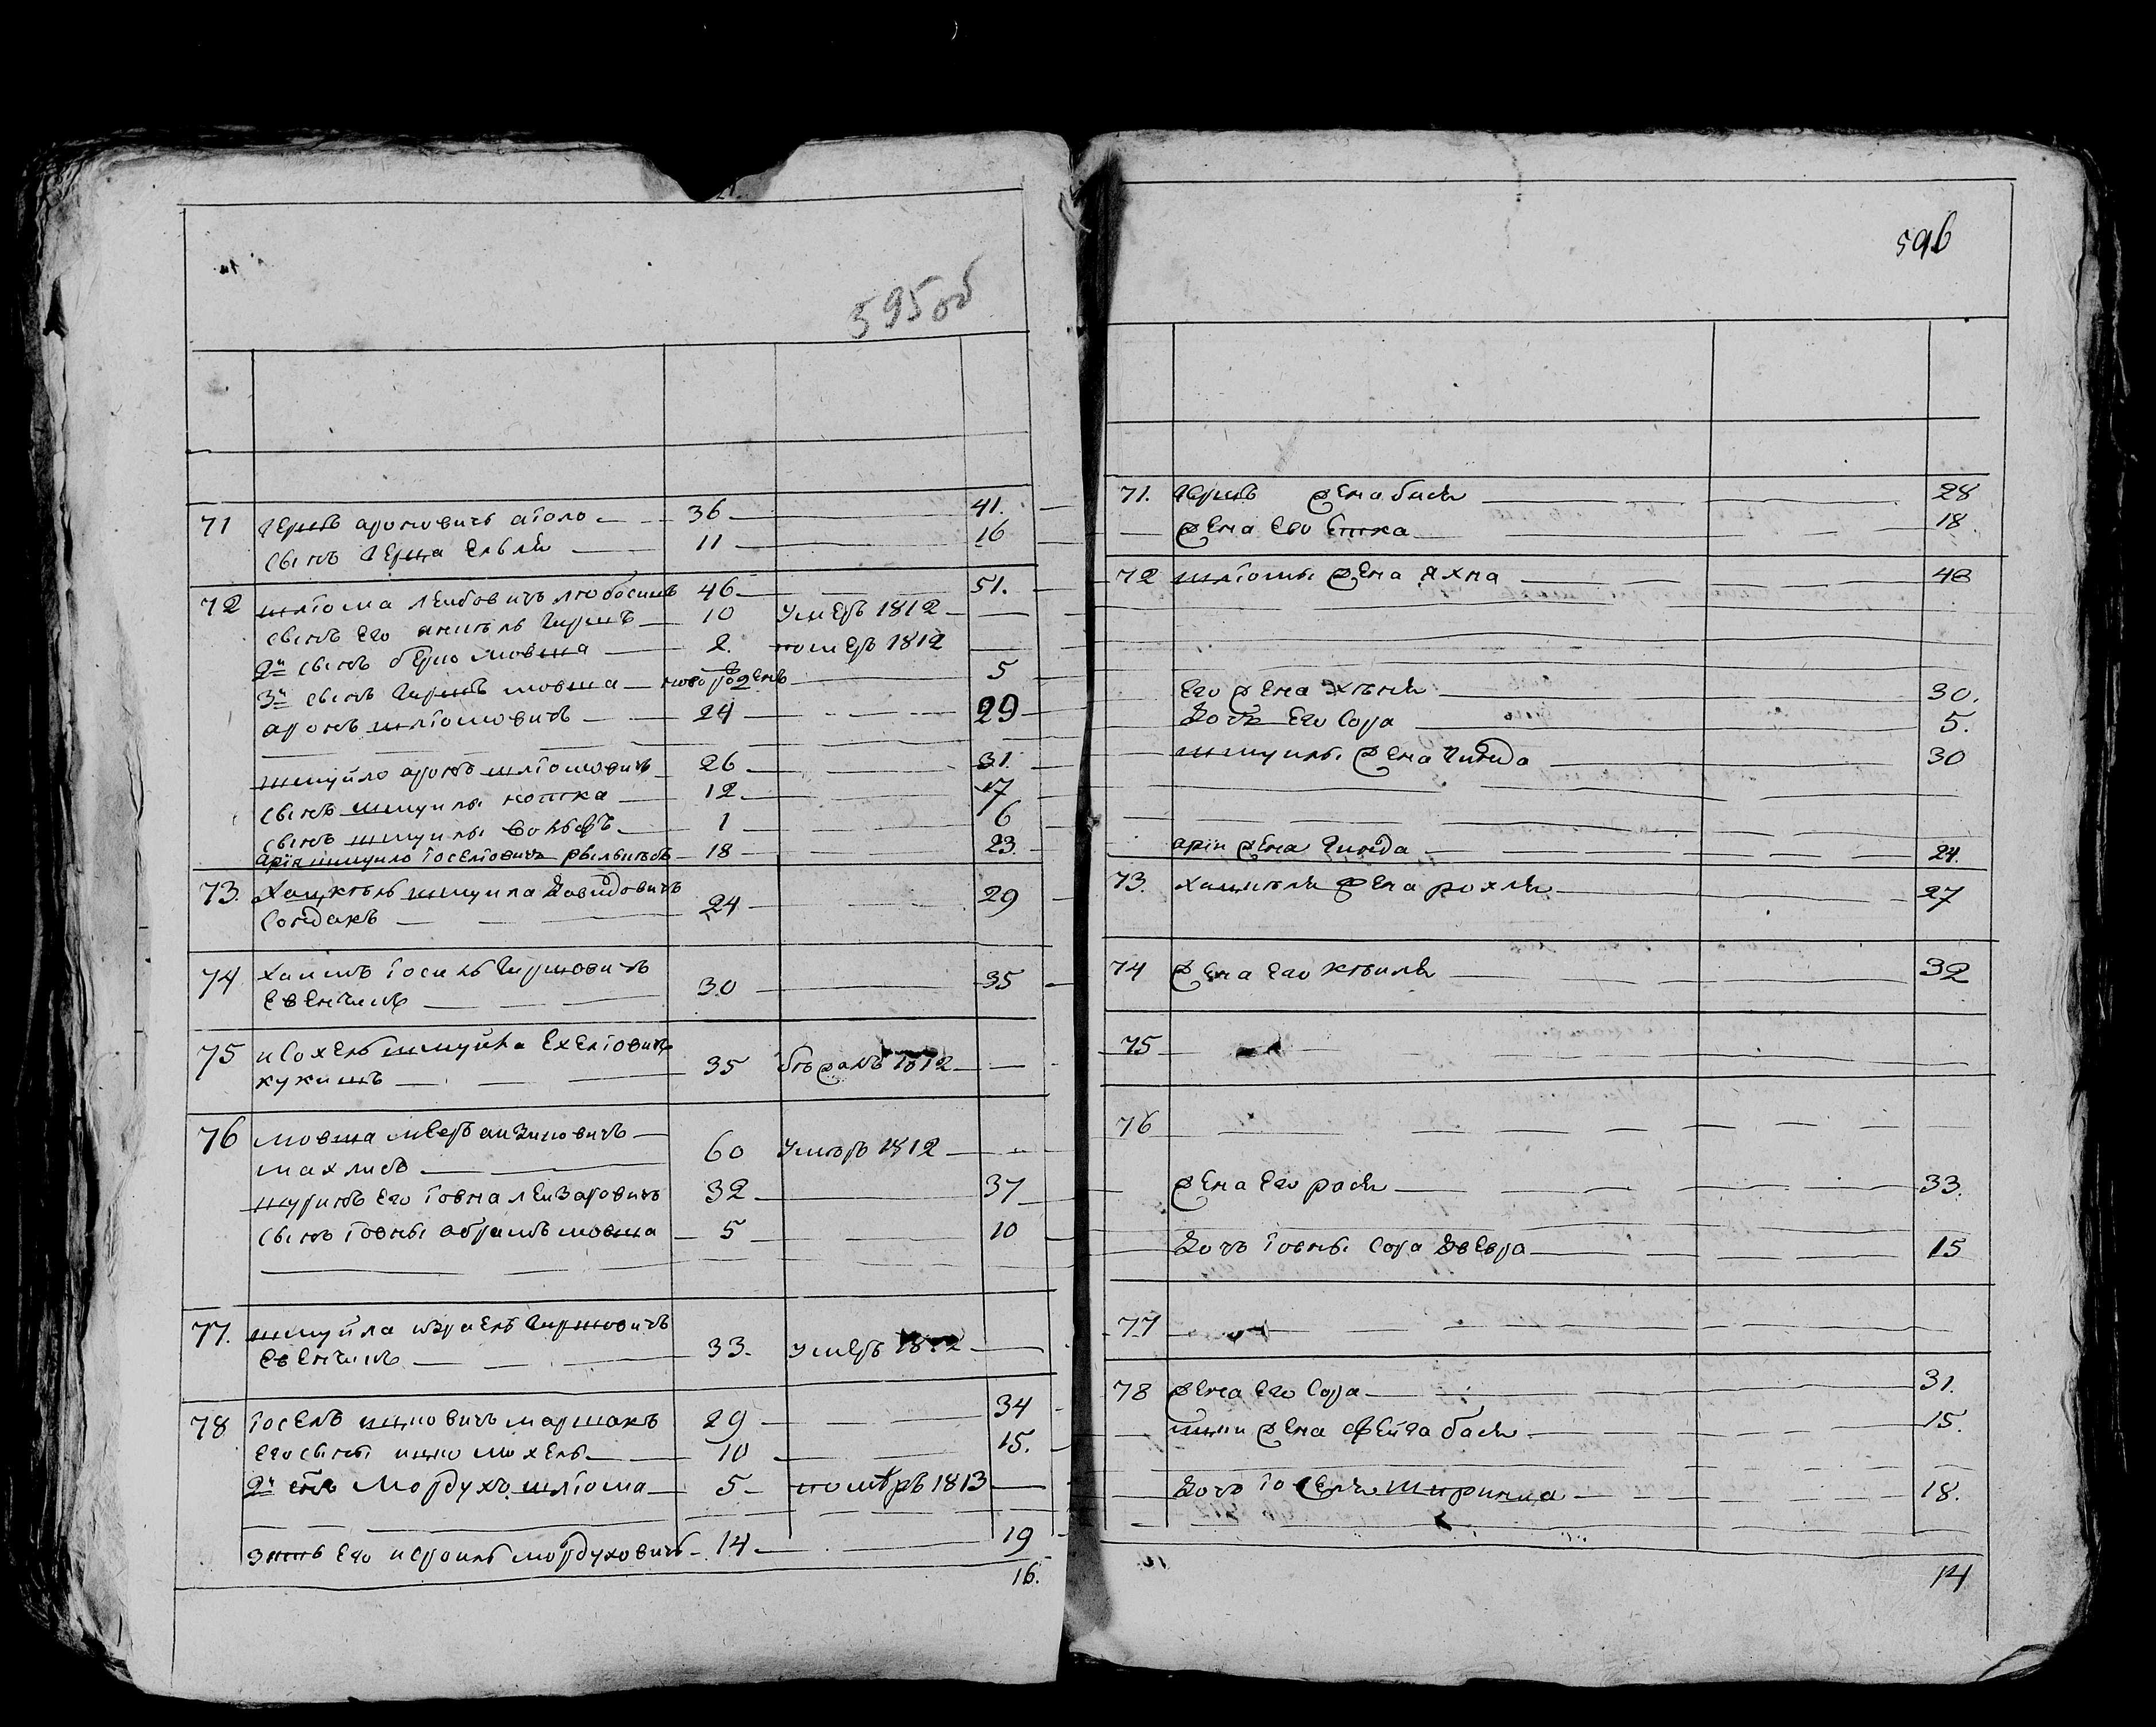 595 об
71 Гершъ ароновичъ 36 41.
сынъ Герша 11 16
72 шлiома лейбовичъ 46 51.
сынъ его Гиршъ 10 умеръ 1812
2й сынъ берко мовша 2. померъ 1812
3й сынъ Гиршъ мовша новорожденъ 5
аронъ шлiомовичъ 24 29
шмуйло аронъ шлiомовичъ 26 31.
сынъ шмуилы нотка 12 17
сынъ шмуилы вольфъ 1 6
арiя шмуило Iоселiовичъ 18 23.
73. Хацкель шмуила Давидовичъ
Сондакъ 24 29
74 хаимъ Iосиль Гиршовичъ
Евенчикъ 30 35
75 исохеръ шмуйла Ехелiовичъ
кукишъ 35 бежалъ 1812
76 мовша меер айзиковичъ
махлисъ 60 умеръ 1812
шуринъ его Iовна лейзаровичъ 32 37
сынъ Iовны абрамъ мовша 5 10
77. шмуйла израель Гиршовичъ
Евенчикъ 33. умеръ 1812
78 Iосель ицковичъ маршакъ 29 34
его сынъ ицко михель 10 15.
2й снъ Мордухъ шлiома 5 помѣръ 1813
зять его исроиль мордуховичъ 14 19
16.
596
71. Гершъ жена бася 28
жена его Етка 18
72 шлiомы жена яхна 48
его жена 30.
Дочъ его Сора 5.
шмуилы жена Гинда 30
арiи жена Гинда 24.
73. жена рохля 27
74 жена его 32
75
76
жена его рася 33.
Дочъ Iовны Сора Двевра 15
77
78 жена его Сора 31.
ицки жена фейга бася 15.
Дочъ Iоселя 18.
14